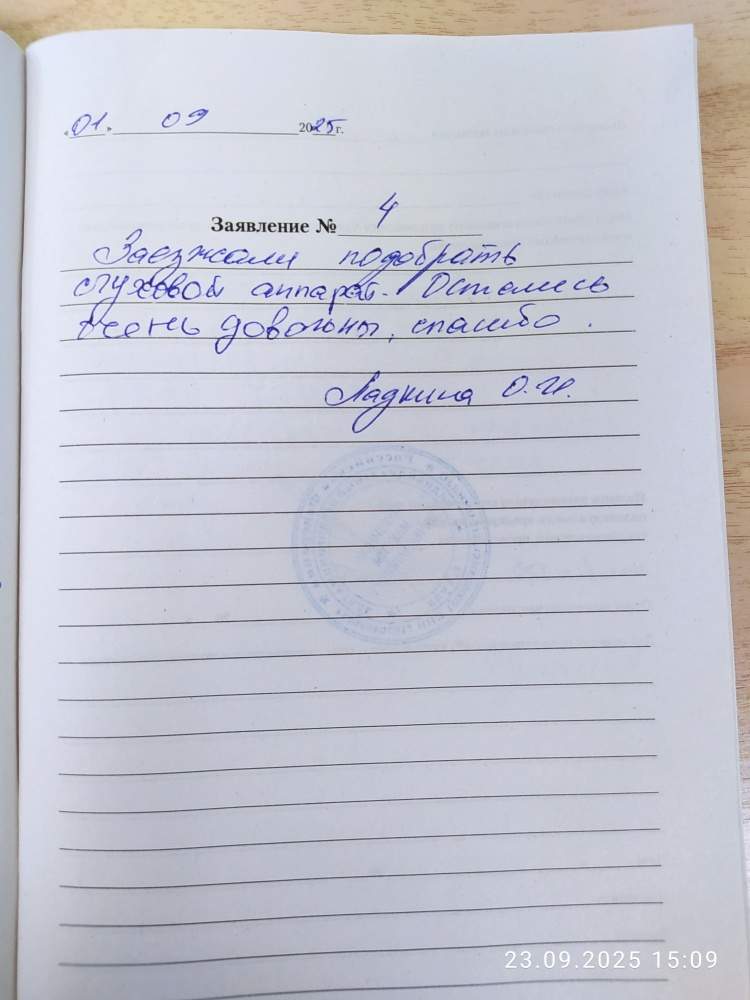 «01» 09 2025г.
Заявление № 4
Заезжали подобрать
слуховой аппарат. Остались
очень довольны, спасибо.
Ладкина О.И.
23.09.2025 15:09